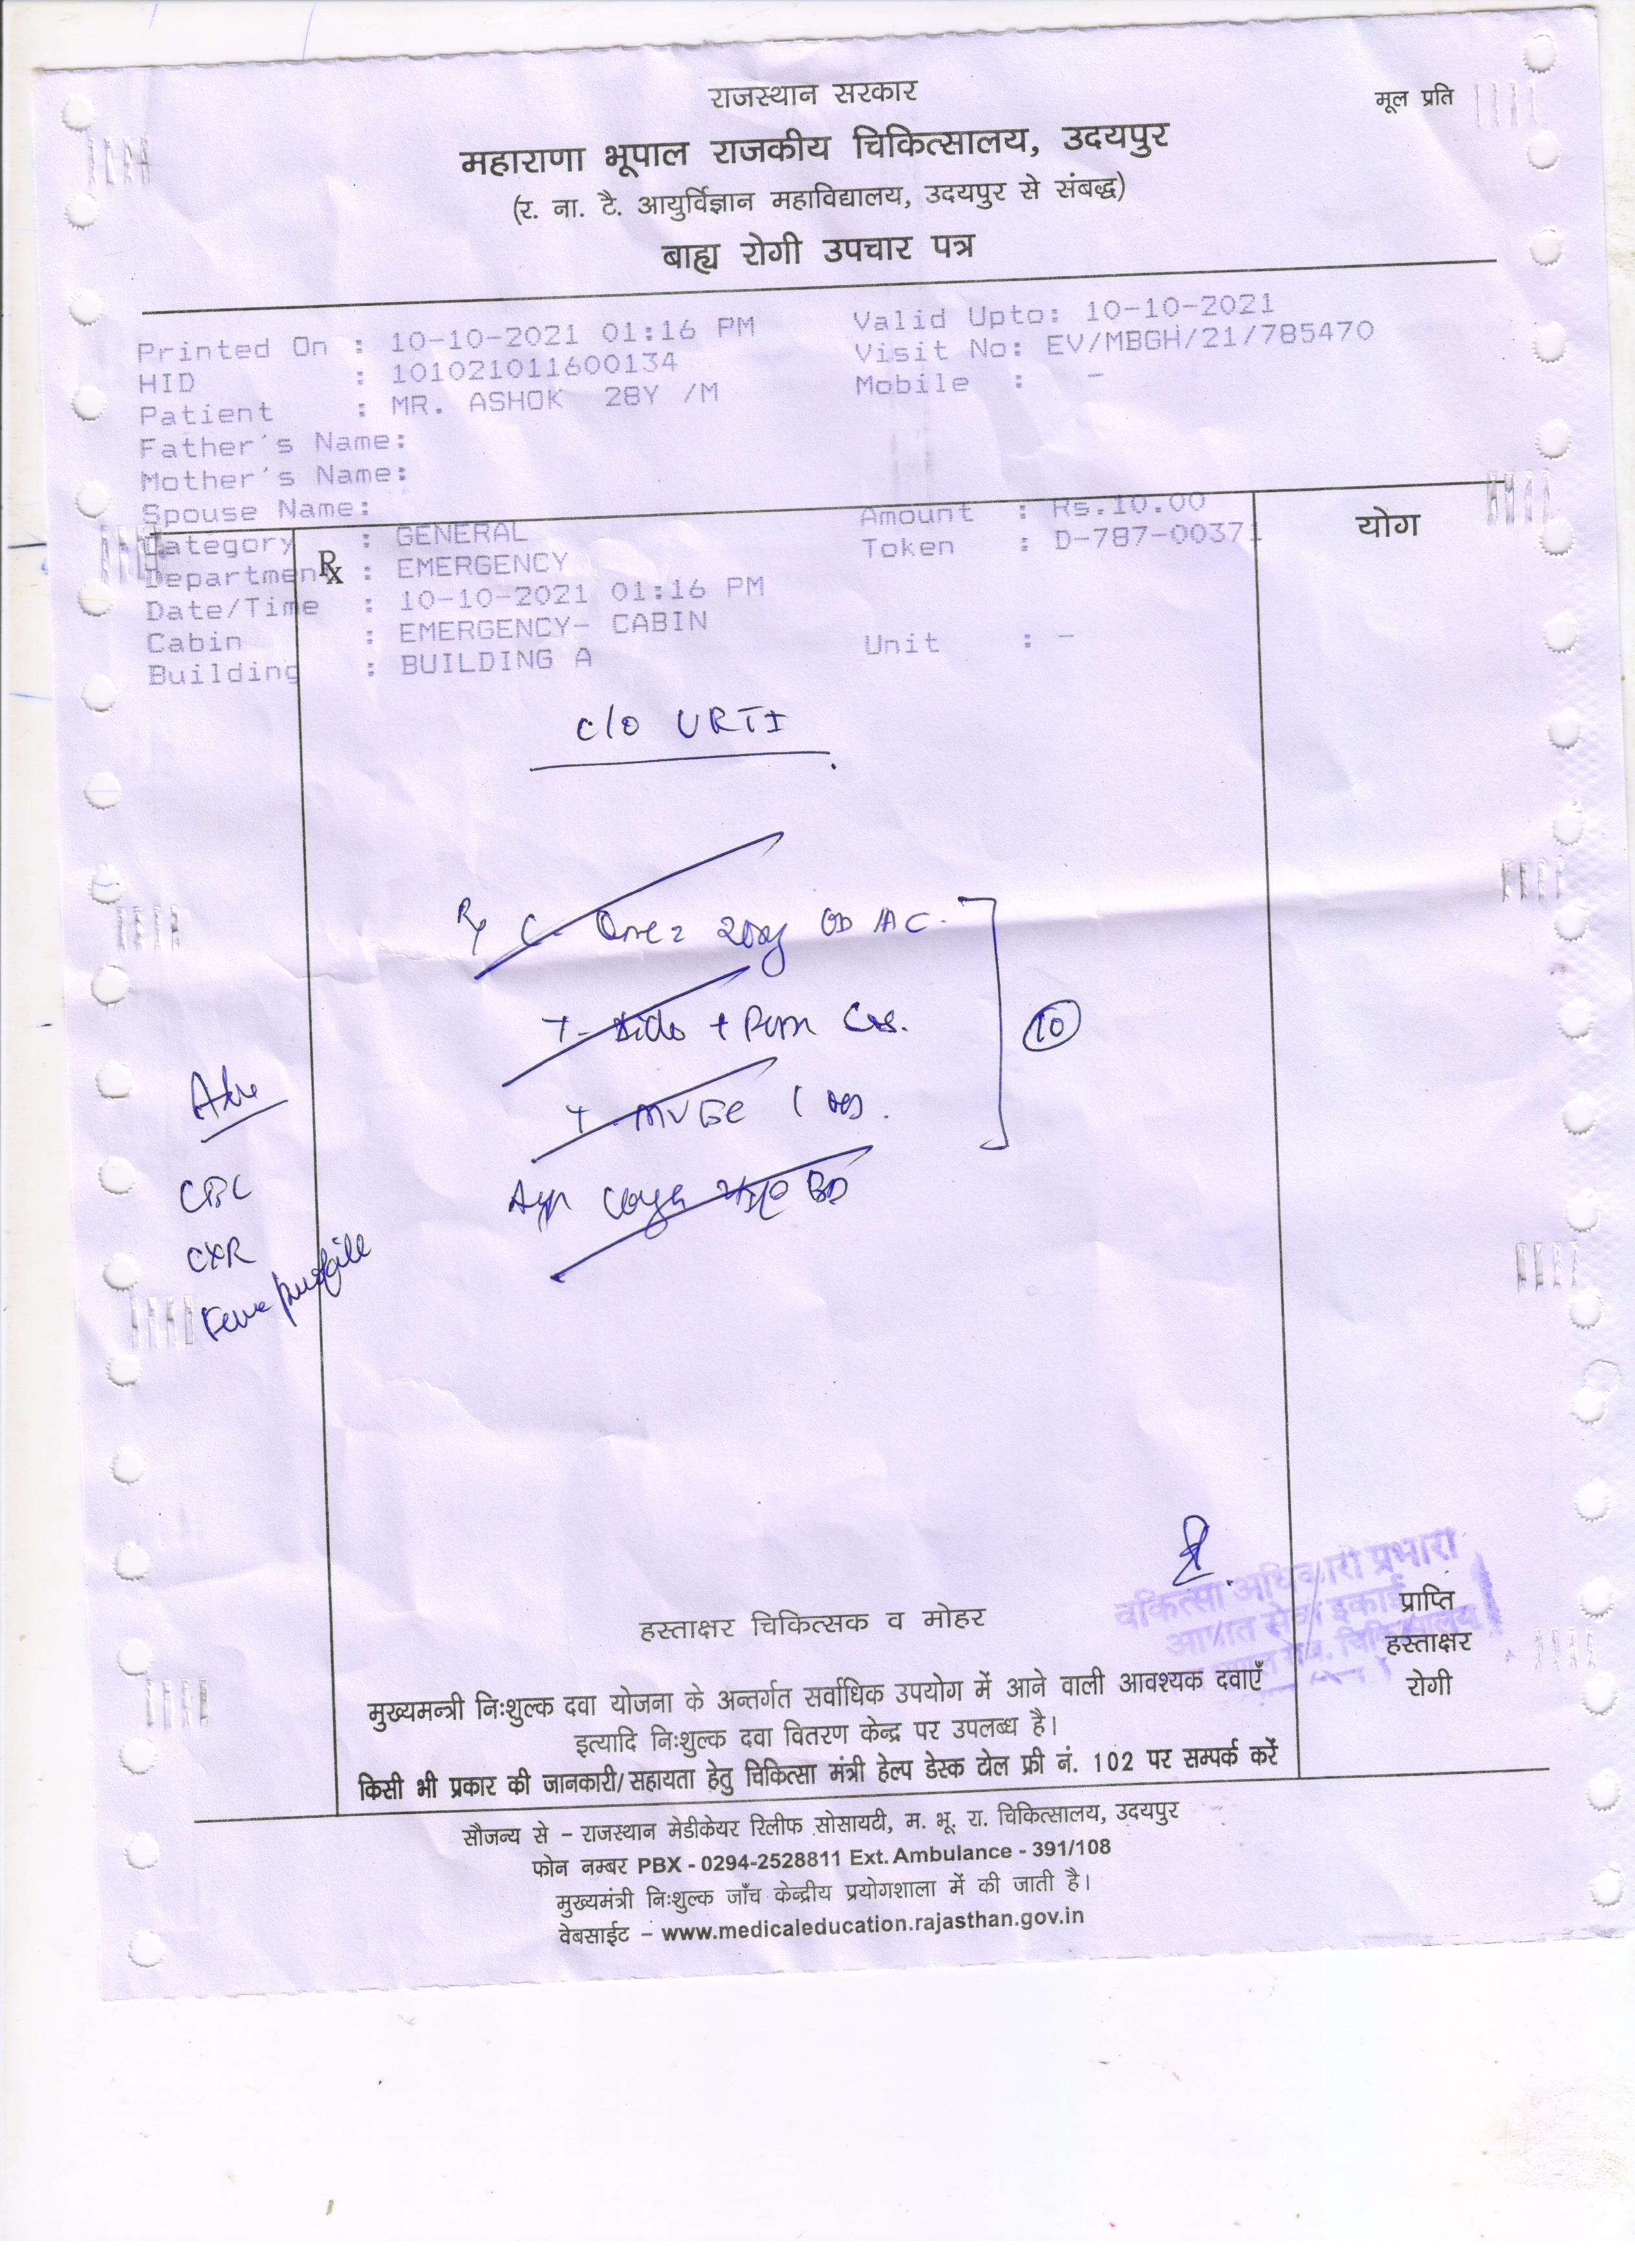 राजस्थान सरकार
मूल प्रति
महाराणा भूपाल राजकीय चिकित्सालय, उदयपुर
(र. ना. टै. आयुर्विज्ञान महाविद्यालय, उदयपुर से संबद्ध)
बाह्य रोगी उपचार पत्र
Printed On : 10-10-2021 01:16 PM Valid Upto: 10-10-2021
HID : 101021011600134 Visit No: EV/MBGH/21/785470
Patient : MR. ASHOK 28Y /M Mobile : -
Father's Name:
Mother's Name:
Spouse Name: Amount : Rs.10.00
Category : GENERAL Token : D-787-00371
योग
Department : EMERGENCY
Rx
Date/Time : 10-10-2021 01:16 PM
Cabin : EMERGENCY- CABIN Unit : -
Building : BUILDING A
C/O URTI
Rx C- 20mg OD AC.
T- + Pcm
10
T- MVBC 1
CBC
CXR
profile
चिकित्सा अधिकारी प्रभारी
हस्ताक्षर चिकित्सक व मोहर
प्राप्ति
हस्ताक्षर
रोगी
मुख्यमन्त्री निःशुल्क दवा योजना के अन्तर्गत सर्वाधिक उपयोग में आने वाली आवश्यक दवाएँ
इत्यादि निःशुल्क दवा वितरण केन्द्र पर उपलब्ध है।
किसी भी प्रकार की जानकारी/सहायता हेतु चिकित्सा मंत्री हेल्प डेस्क टोल फ्री नं. 102 पर सम्पर्क करें
सौजन्य से - राजस्थान मेडीकेयर रिलीफ सोसायटी, म. भू. रा. चिकित्सालय, उदयपुर
फोन नम्बर PBX - 0294-2528811 Ext. Ambulance - 391/108
मुख्यमंत्री निःशुल्क जाँच केन्द्रीय प्रयोगशाला में की जाती है।
वेबसाईट - www.medicaleducation.rajasthan.gov.in